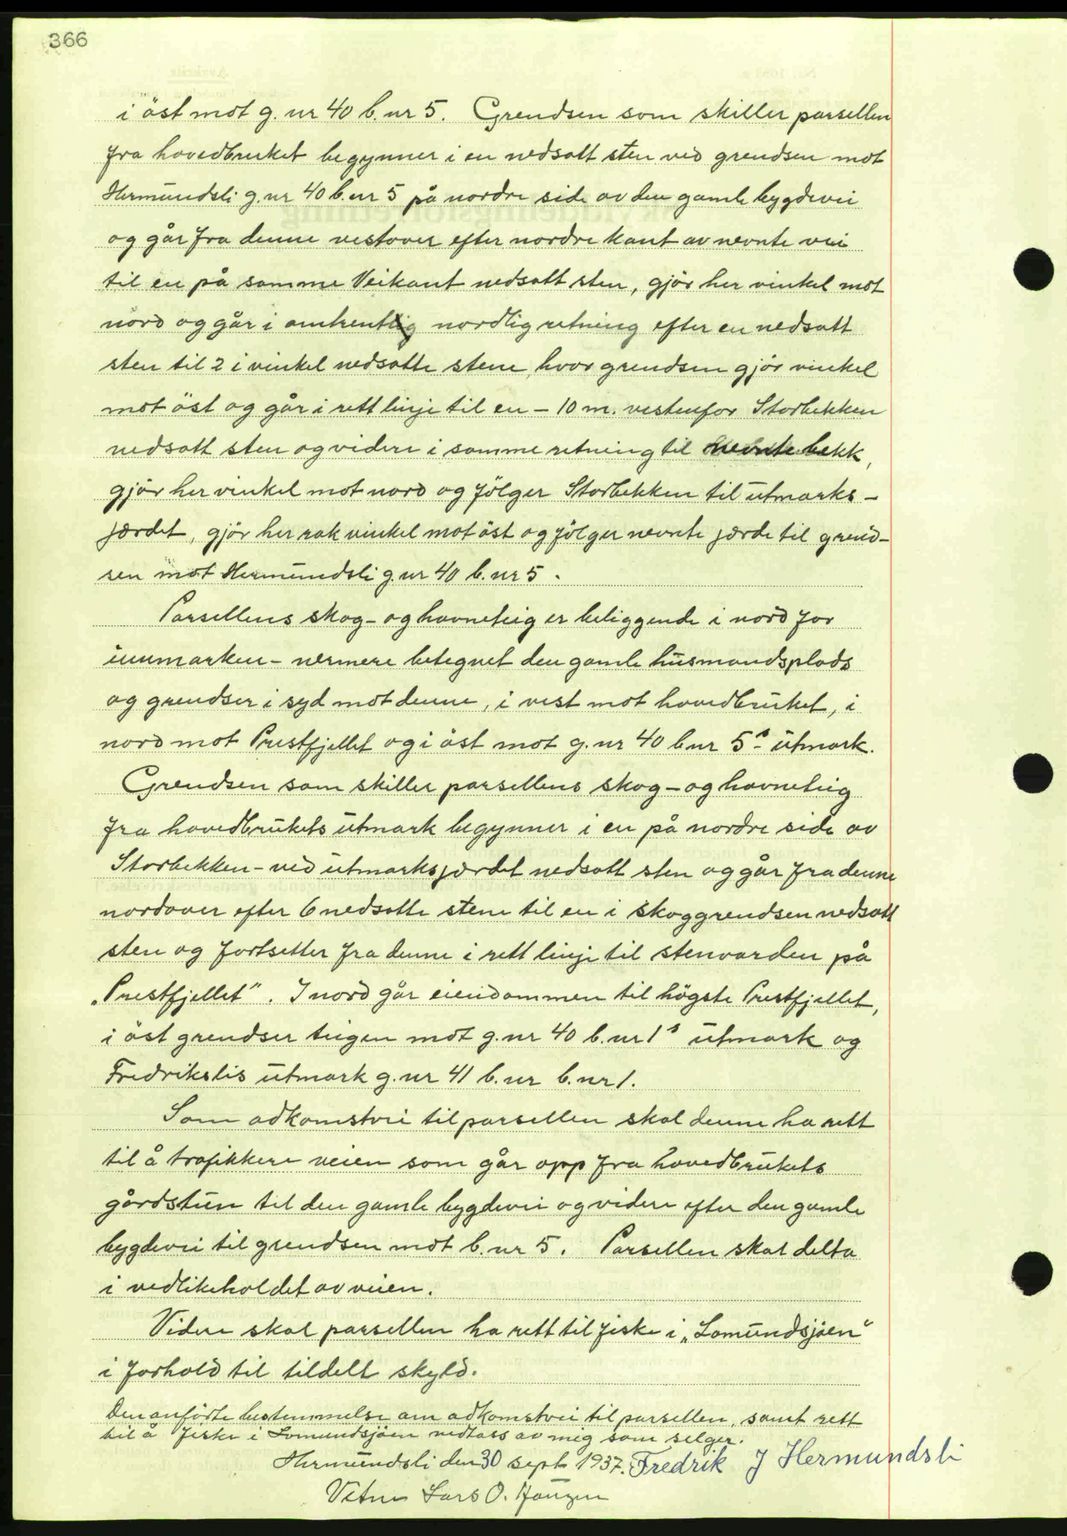 366
i öst mot g. nr 40 b. nr 5. Grendsen som skiller parsellen
fra hovedbruket begynner i en nedsatt sten ved grendsen mot
Hermundsli g. nr 40 b. nr 5 på nordre side av den gamle bygdevei
og går fra denne vestover efter nordre kant av nevnte vei
til en på samme Veikant nedsatt sten, gjör her vinkel mot
nord og går i omtrentlig nordlig retning efter en nedsatt
sten til 2 i vinkel nedsatte stene, hvor grendsen gjör vinkel
mot öst og går i rett linje til en - 10 m. vestenfor Storbekken
nedsatt sten og videre i samme retning til nevnte bekk,
gjör her vinkel mot nord og fölger Storbekken til utmarks-
jærdet, gjör her rak vinkel mot öst og fölger nevnte jærde til grend-
sen mot Hermundsli g. nr 40 b. nr 5.
Parsellens skog- og havneteig er beliggende i nord for
innmarken - nermere betegnet den gamle husmandsplads
og grendser i syd mot denne, i vest mot hovedbruket, i
nord mot Prestfjellet og i öst mot g. nr 40 b nr 5s utmark.
Grendsen som skiller parsellens skog- og havneteig
fra hovedbrukets utmark begynner i en på nordre side av
Storbekken - ved utmarksjærdet nedsatt sten og går fra denne
nordover efter 6 nedsatte stene til en i skoggrendsen nedsatt
sten og fortsetter fra denne i rett linje til stenvarden på
„Prestfjellet“. I nord går eiendommen til högste Prestfjellet,
i öst grendser teigen mot g. nr 40 b. nr 1s utmark og
Fredrikslis utmark g. nr 41 b. nr b. nr 1.
Som adkomstvei til parsellen skal denne ha rett
til å trafikkere veien som går opp fra hovedbrukets
gårdstun til den gamle bygdevei og videre efter den gamle
bygdevei til grendsen mot b. nr 5. Parsellen skal delta
i vedlikeholdet av veien.
Videre skal parsellen ha rett til fiske i „Lomundsjöen“
i forhold til tildelt skyld.
Den anförte bestemmelse om adkomstvei til parsellen, samt rett
til å fiske i Lomundsjöen vedtass av mig som selger.
Hermundsli den 30 sept 1937. Fredrik J Hermundsli
Vitne Lars O.